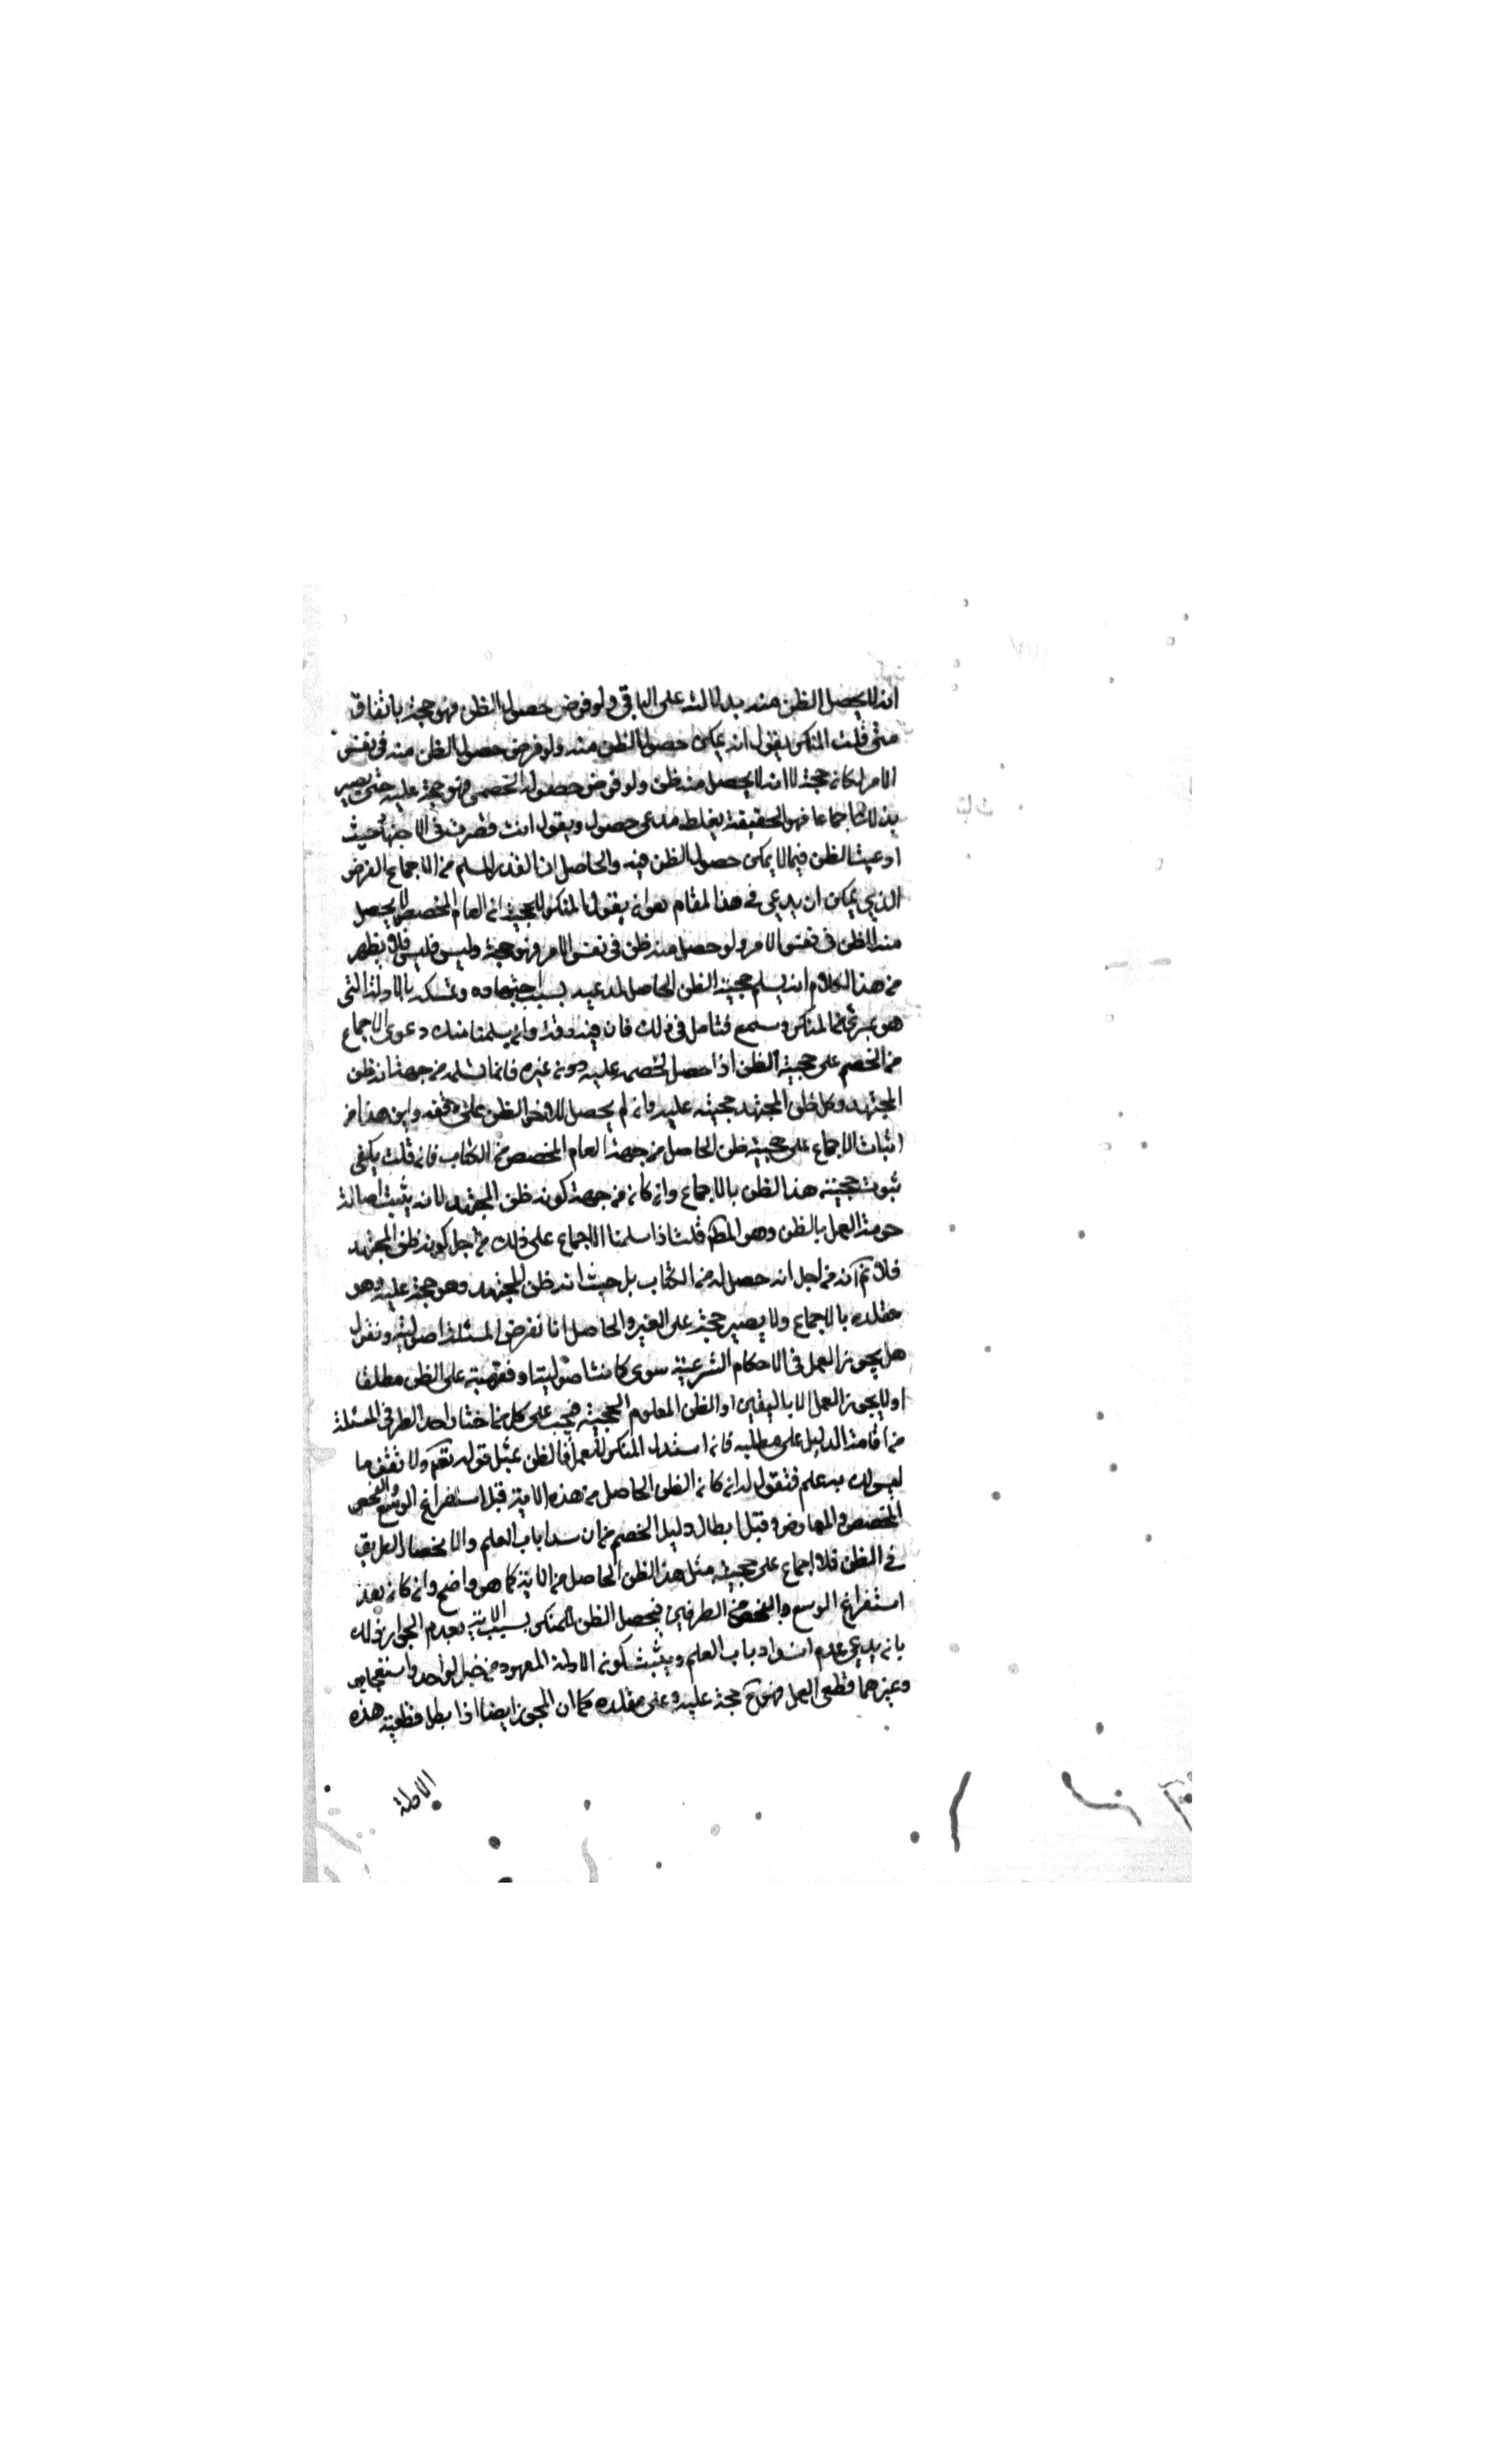 انه لا يحصل الظن منه بدلالته على الباقى ولو فرض حصول الظن فهو حجة باتفاق
متى قلت المنكر يقول انه يمكن حصول الظن منه ولو فرض حصول الظن منه فى نفس
الامر لكان حجة لا انه لا يحصل منه ظن ولو فرض حصوله لخصمى فهو حجة عليه حتى يصير
بذلك اجماعا فهو فى الحقيقة يغلط مدعى حصوله ويقول انت قصرت فى الاجتهاد حيث
ادعيت الظن فيما لا يمكن حصول الظن فيه والحاصل ان القدر المسلم من الاجماع الفرضى
الذى يمكن ان يدعى فى هذا المقام هو ان يقول المنكر للحجية ان العام المخصص لا يحصل
منه الظن فى نفس الامر ولو حصل منه ظن فى نفس الامر فهو حجة وليس فليس فلا يظهر
من هذا الكلام انه يسلم حجية الظن الحاصل لمدعيه بسبب اجتهاده وتمسكه بالادلة التى
هو بمرئى المنكر ومسمع فتامل فى ذلك فان فيه دقة وان سلمنا منك دعوى الاجماع
من الخصم على حجية الظن اذا حصل لخصمه عليه دون غيره فانما نسلمه من جهة انه ظن
المجتهد وكل ظن المجتهد حجة عليه وان لم يحصل للاخر الظن على وفقه واين هذا من
اثبات الاجماع على حجية ظن الحاصل من جهة العام المخصص من الكتاب فان قلت يكفى
ثبوت حجية هذا الظن بالاجماع وان كان من جهة كونه ظن المجتهد لانه يثبت اصالة
حرمة العمل بالظن وهو المط قلت اذا سلمنا الاجماع على ذلك من اجل كونه ظن المجتهد
فلا تم انه من اجل انه حصل له من الكتاب بل حيث انه ظن المجتهد وهو حجة عليه وهو
مقلده بالاجماع ولا يصير حجة على الغير والحاصل انا نفرض المسئلة اصولية ونقول
هل يجوز العمل فى الاحكام الشرعية سوى كانت اصولية او فقهية على الظن مطلقا
او لا يجوز العمل الا باليقين او الظن المعلوم الحجية فيجب على كل من اختار احد الطرفى المسئلة
من اقامة الدليل على مطلبه فان استدل المنكر للعمل بالظن بمثل قوله تعم ولا تقف ما
ليس لك به علم فنقول له ان كان الظن الحاصل من هذه الاية قبل استفراغ الوسع والفحص
المخصص والمعارض وقبل ابطال دليل الخصم من انسداد باب العلم والانحصار الطريق
فى الظن فلا اجماع على حجية مثل هذا الظن الحاصل من الاية كما هو واضح وان كان بعد
استفراغ الوسع والفحص من الطرفين فيحصل الظن للمنكر بسبب الاية بعدم الجواز وذلك
بان يدعى عدم انسداد باب العلم ويثبت كون الادلة المعهود من خبر الواحد واستصحاب
وغيرهما قطعى العمل فهو ح حجة عليه وعلى مقلده كما ان المجوز ايضا اذا بطل قطعية هذه
الادلة